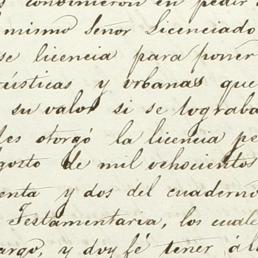 convinieron en pedir a
mismo Señor Licenciado
se licencia para poner
rústicas y urbanas que
su valor si se lograba
les otorgó la licencia pe
gosto de mil ochocientos
enta y dos del cuaderno
Testamentaria, los cuale
argo, y doy fé tener á l